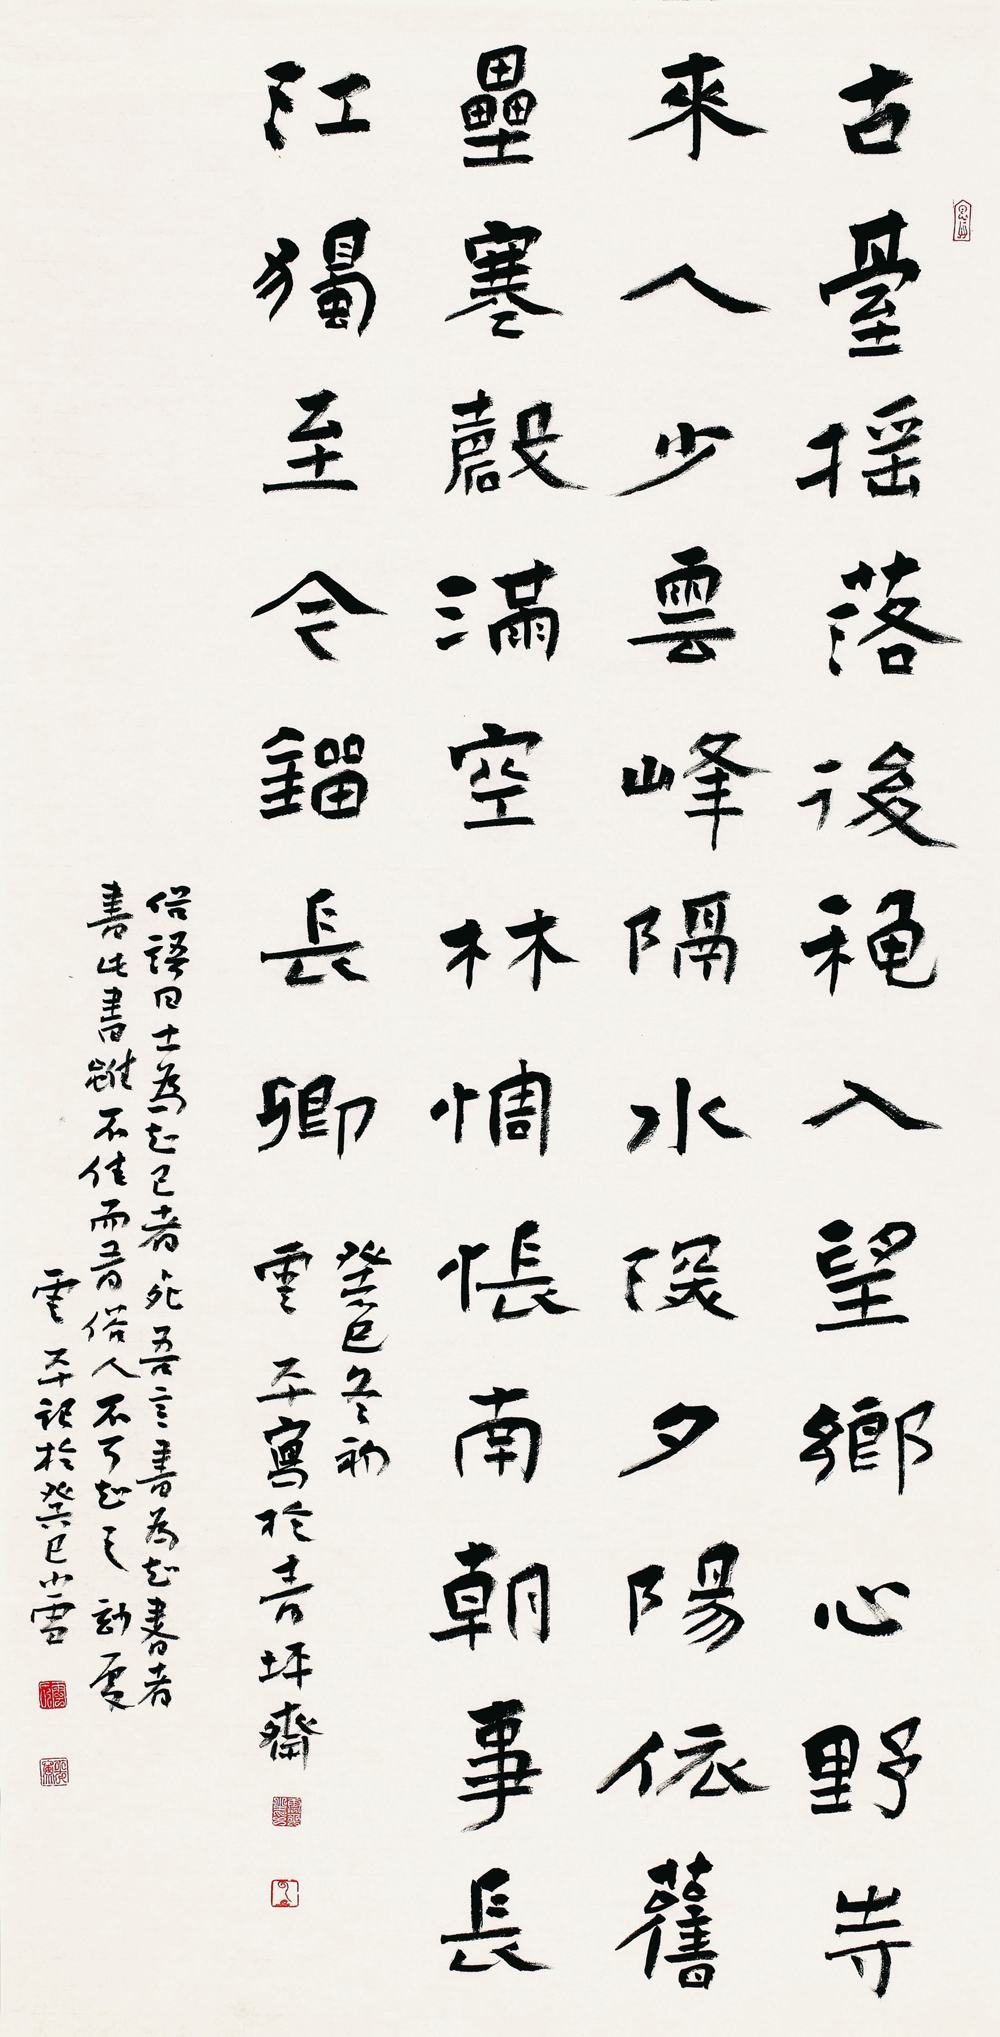 古臺搖落後穐入望鄉心野寺
來人少雲峰隔水深夕陽依舊
壘寒磬滿空林惆悵南朝事長
江獨至今錙長卿
癸巳冬初
雲平寫於青坪齋
俗語曰士為知己者死吾言書為知書者
書此書雖不佳而昔俗人不可知之
雲平記於癸巳小雪